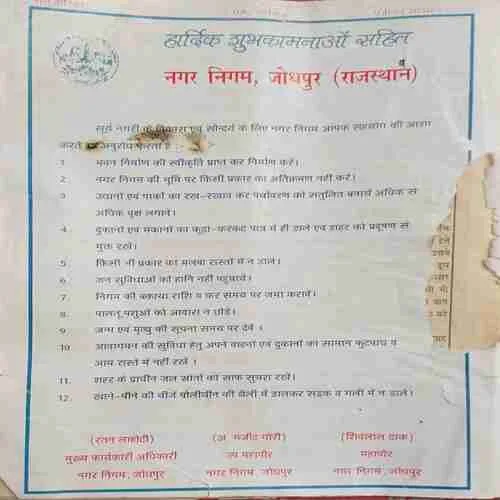 हार्दिक शुभकामनाओं सहित
नगर निगम, जोधपुर (राजस्थान)
सूर्य नगरी के विकास एवं सौन्दर्य के लिए नगर निगम आपके सहयोग की आशा
करते अनुरोध करता है :-
1. भवन निर्माण की स्वीकृति प्राप्त कर निर्माण करें।
2. नगर निगम की भूमि पर किसी प्रकार का अतिक्रमण नहीं करें।
3. उद्यानों एवं पार्कों का रख-रखाव कर पर्यावरण को संतुलित बनायें अधिक से
अधिक वृक्ष लगावें।
4. दुकानों एवं मकानों का कूड़ा-करकट पात्र में ही डाले एवं शहर को प्रदूषण से
मुक्त रखें।
5. किसी भी प्रकार का मलबा रास्तों में न डाले।
6. जन सुविधाओं को हानि नहीं पहुंचावें।
7. निगम की बकाया राशि व कर समय पर जमा करावें।
8. पालतू पशुओं को आवारा न छोड़ें।
9. जन्म एवं मृत्यु की सूचना समय पर देवें ।
10. आवागमन की सुविधा हेतु अपने वाहनों एवं दुकानों का सामान फुटपाथ व
आम रास्ते में नहीं रखें ।
11. शहर के प्राचीन जल स्रोतों को साफ सुथरा रखें।
12. खाने-पीने की चीजें पोलीथीन की थैली में डालकर सड़क व गली में न डाले।
(रतन लाहोटी) (अ. मजीद गौरी) (शिवलाल टाक)
मुख्य कार्यकारी अधिकारी उप महापौर महापौर
नगर निगम, जोधपुर नगर निगम, जोधपुर नगर निगम, जोधपुर